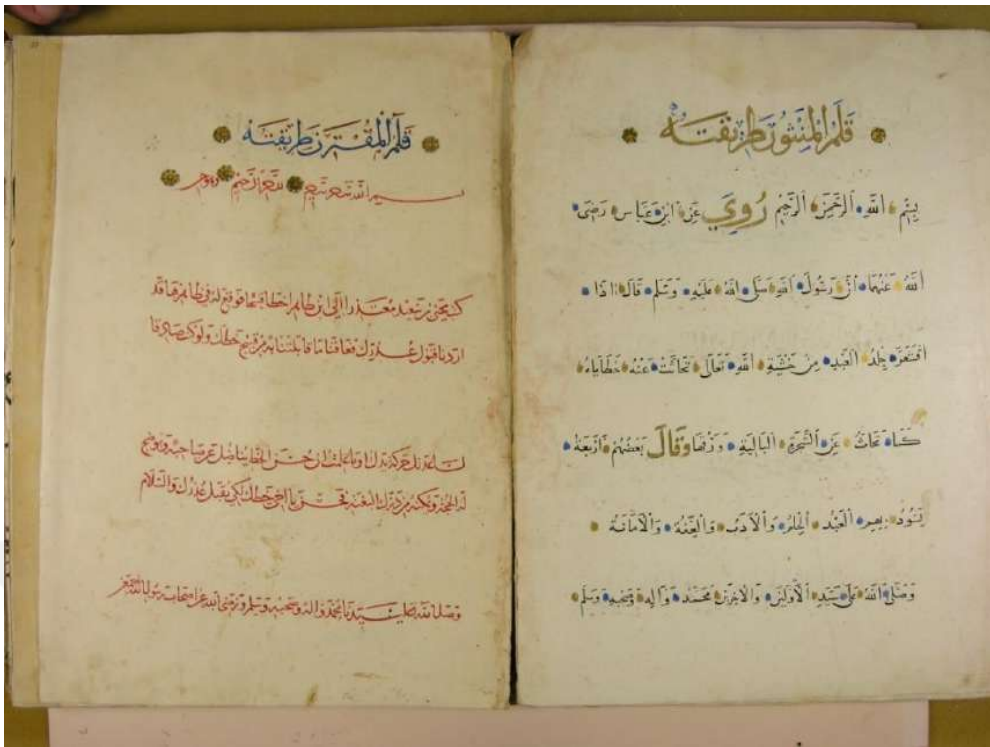 قلم المنثور طريقته
بسم الله الرحمن الرحيم روي عن ابن عباس رضى
الله عنهما أن رسول الله صلى الله عليه وسلم قال اذا
اقشعر جلد العبد من خشية الله تعالى تحاتت عنه خطاياه
كما تحات عن الشجرة البالية ورقها وقال بعضهم اربعة
يسود بهم العبد العلم والأدب والعفة والأمانة
وصلى الله على سيد الأولين والاخرين محمد وآله وصحبه وسلم
قلم المقترن طريقته
بسم الله
كتب يحيى بن معتذرا الى ابن طاهر اخطا فيها فوقع له في ظاهرها قد
اردنا قبول عذرك فعاقنا ما قابلتنا به من قبح خطك ولو كنت صادقا
حركة يدك حسن الخط يناضل عن صاحبه ويوضح
له الحجة ويمكنه من درك البغية خطك لكى يقبل عذرك والسلام
وصلى الله على سيدنا محمد واله وصحبه وسلم ورضي الله عن اصحاب رسول الله اجمعين